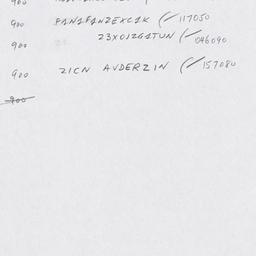 900
900 PANAFANZEXCAK (✓ 117050
900 23X012GATUN (✓ 046090
900 ZICN AVDERZIN (✓ 157080
900